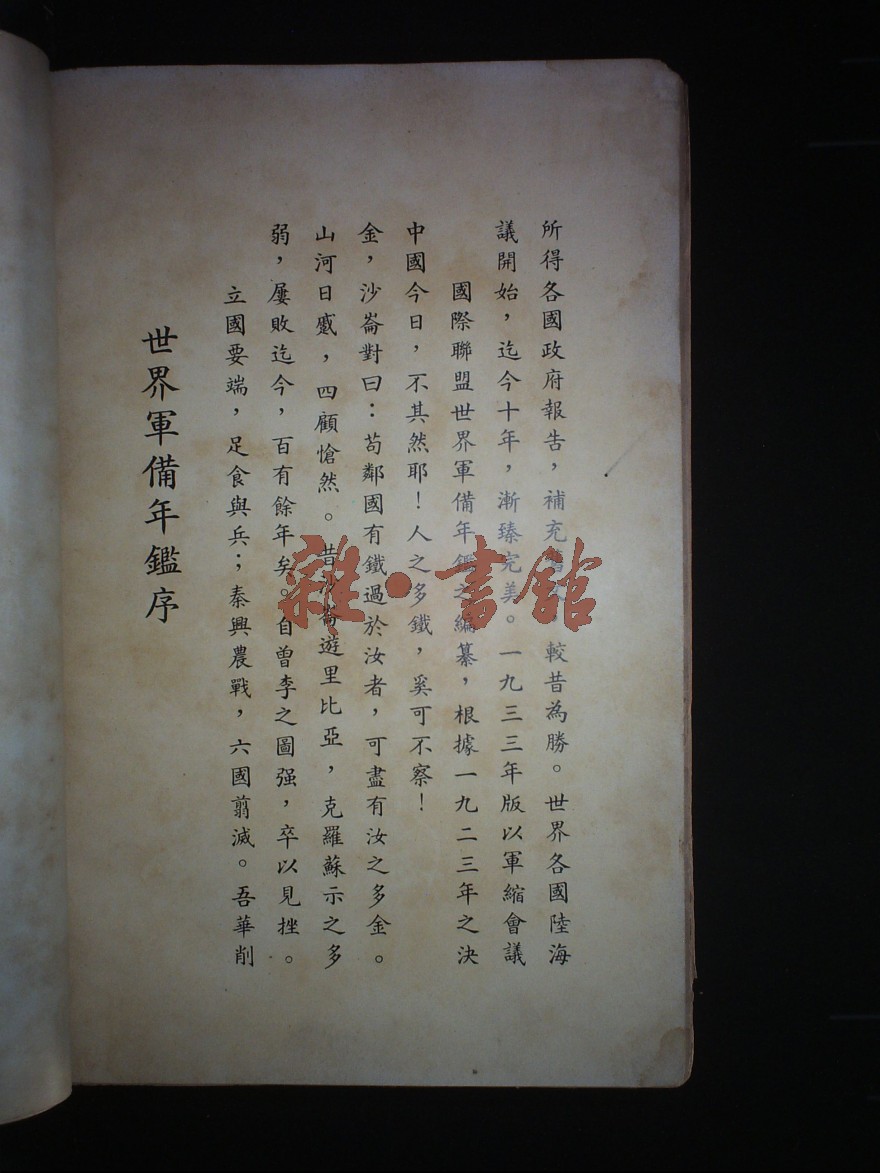 世界軍備年鑑序
立國要端，足食與兵；秦興農戰，六國翦滅。吾華削
弱，屢敗迄今，百有餘年矣。自曾李之圖强，卒以見挫。
山河日蹙，四顧愴然。昔沙崙遊里比亞，克羅蘇示之多
金，沙崙對曰：苟鄰國有鐵過於汝者，可盡有汝之多金。
中國今日，不其然耶！人之多鐵，奚可不察！
國際聯盟世界軍備年鑑之編纂，根據一九二三年之決
議開始，迄今十年，漸臻完美。一九三三年版以軍縮會議
所得各國政府報告，補充，較昔為勝。世界各國陸海
雜·書館